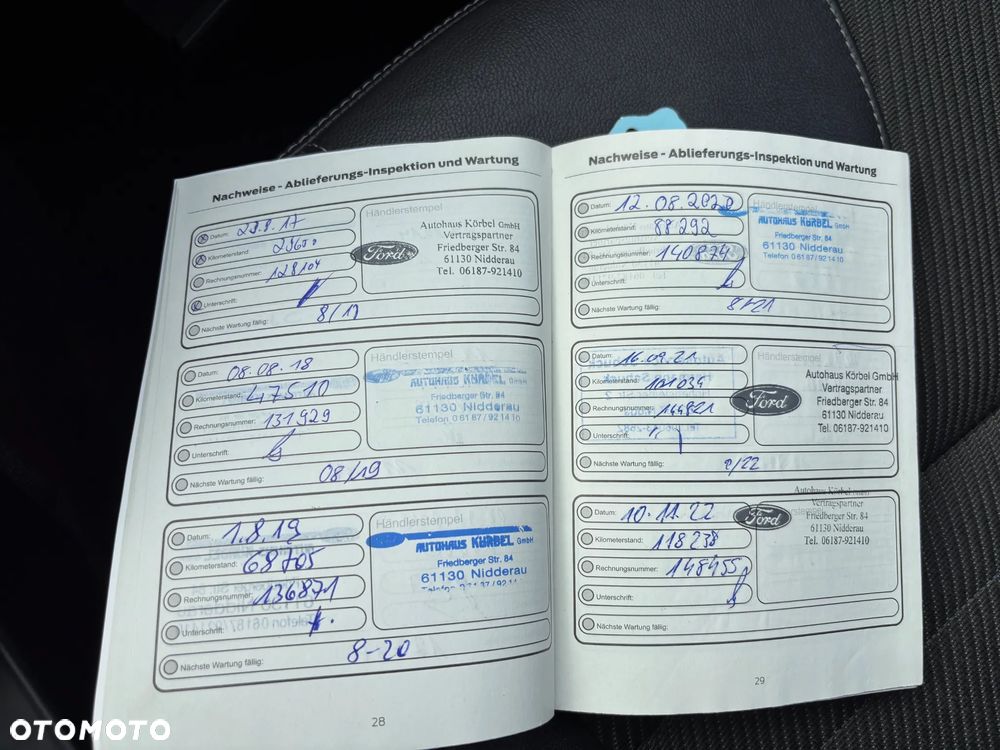 Nachweise - Ablieferungs-Inspektion und Wartung
Datum: 29.8.17
Kilometerstand: 29650
Rechnungsnummer: 128104
Unterschrift:
Nächste Wartung fällig: 8/18
Händlerstempel
Ford
Autohaus Körbel GmbH
Vertragspartner
Friedberger Str. 84
61130 Nidderau
Tel. 06187-921410
Datum: 08.08.18
Kilometerstand: 47510
Rechnungsnummer: 131929
Unterschrift:
Nächste Wartung fällig: 08/19
Händlerstempel
AUTOHAUS KÖRBEL GmbH
Friedberger Str. 84
61130 Nidderau
Telefon 06187/921410
Datum: 1.8.19
Kilometerstand: 68705
Rechnungsnummer: 136871
Unterschrift:
Nächste Wartung fällig: 8-20
Händlerstempel
AUTOHAUS KÖRBEL GmbH
Friedberger Str. 84
61130 Nidderau
28
Nachweise - Ablieferungs-Inspektion und Wartung
Datum: 12.08.2020
Kilometerstand: 88292
Rechnungsnummer: 140874
Unterschrift:
Nächste Wartung fällig: 8/21
Händlerstempel
AUTOHAUS KÖRBEL GmbH
Friedberger Str. 84
61130 Nidderau
Telefon 06187/921410
Datum: 16.09.21
Kilometerstand: 101034
Rechnungsnummer: 144821
Unterschrift:
Nächste Wartung fällig: 9/22
Händlerstempel
Ford
Autohaus Körbel GmbH
Vertragspartner
Friedberger Str. 84
61130 Nidderau
Tel. 06187-921410
Datum: 10.11.22
Kilometerstand: 118238
Rechnungsnummer: 148455
Unterschrift:
Nächste Wartung fällig:
Ford
Autohaus Körbel GmbH
Vertragspartner
Friedberger Str. 84
61130 Nidderau
Tel. 06187-921410
29
OTOMOTO